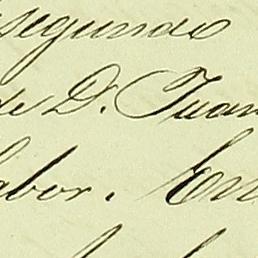 segundo
de D. Juan
labor. En